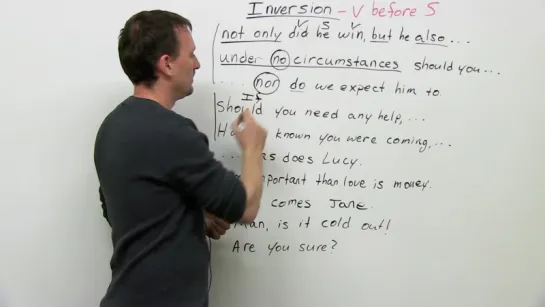 Inversion - V before S
V S V
not only did he win, but he also ...
under no circumstances should you ...
.... nor do we expect him to.
If
Should you need any help, ...
known you were coming, ...
as does Lucy.
than love is money.
comes Jane.
Man, is it cold out!
Are you sure?